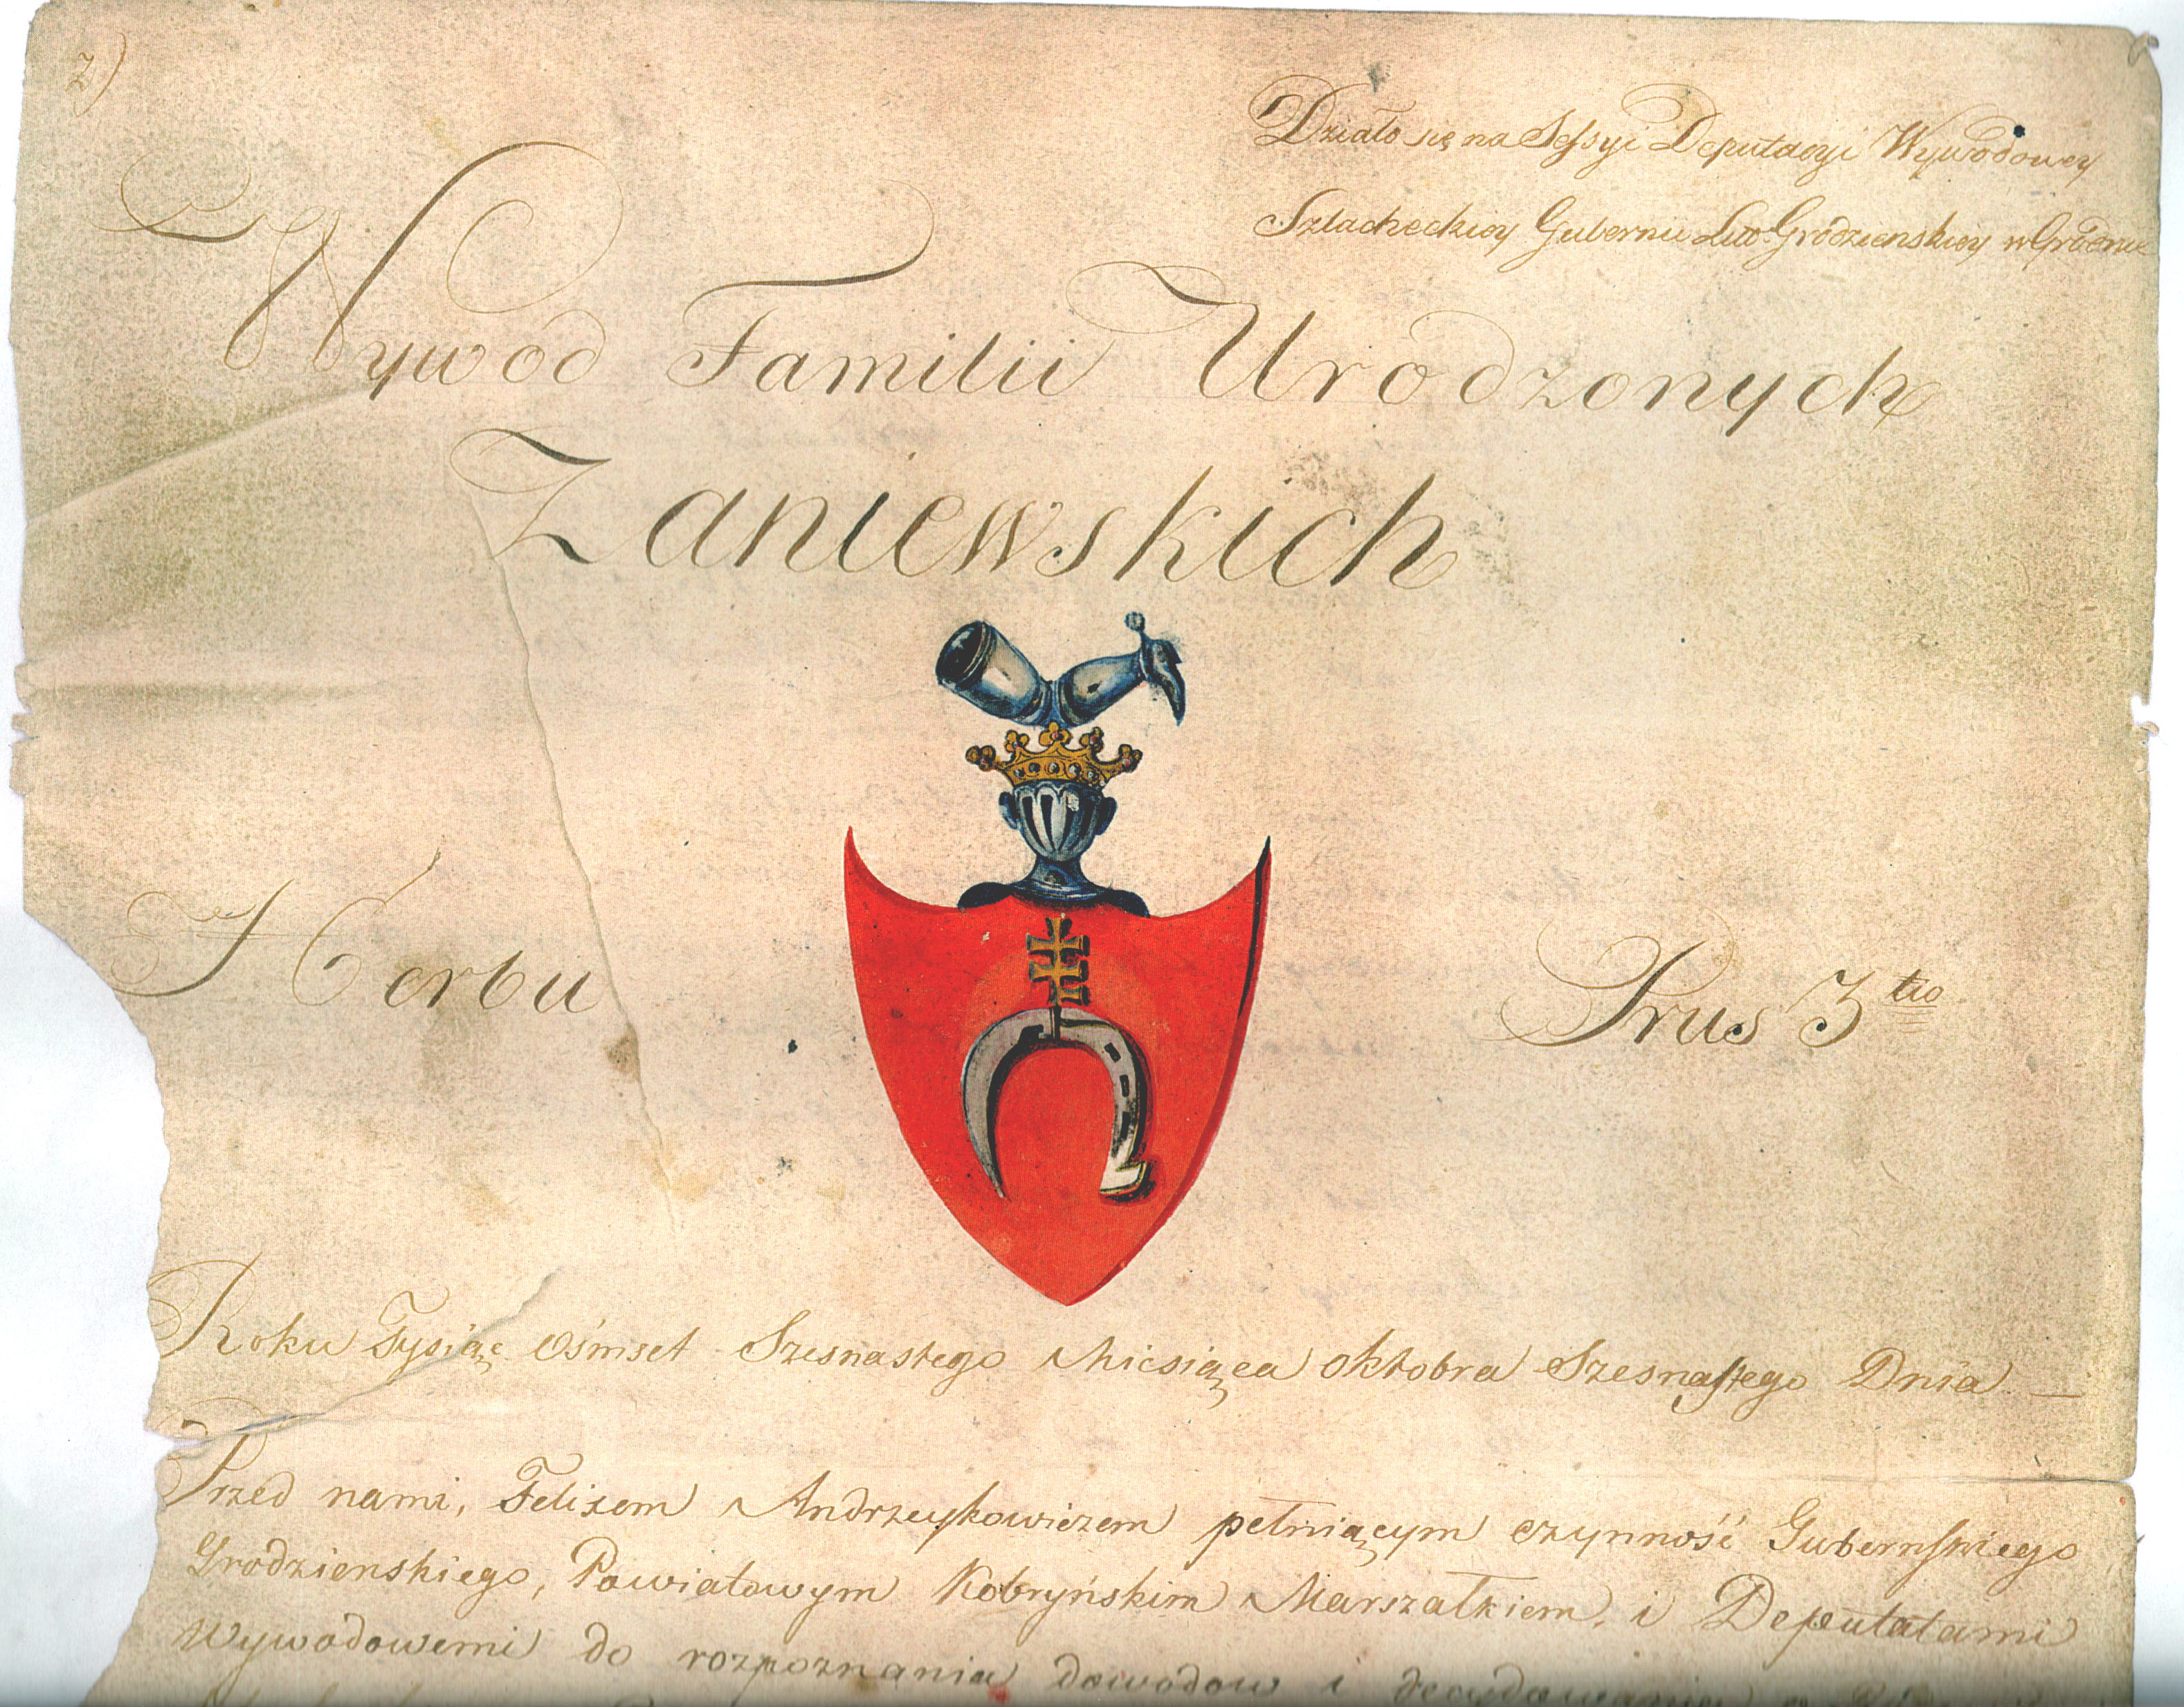 2)
Działo się na Sessyi Deputacyi Wywodowey
Szlacheckiey Gubernii Litto Grodzienskiey w Grodnie
Wywód Familii Urodzonych
Zaniewskich
Herbu Prus 3tio
Roku Tysiąc Ośmset Szesnastego Miesiąca oktobra Szesnastego Dnia —
Przed nami, Felixem Andrzeykowiczem pełniącym czynność Gubernskiego
Grodzienskiego, Powiatowym Kobryńskim Marszałkiem, i Deputatami
Wywodowemi do rozpoznania dowodow i